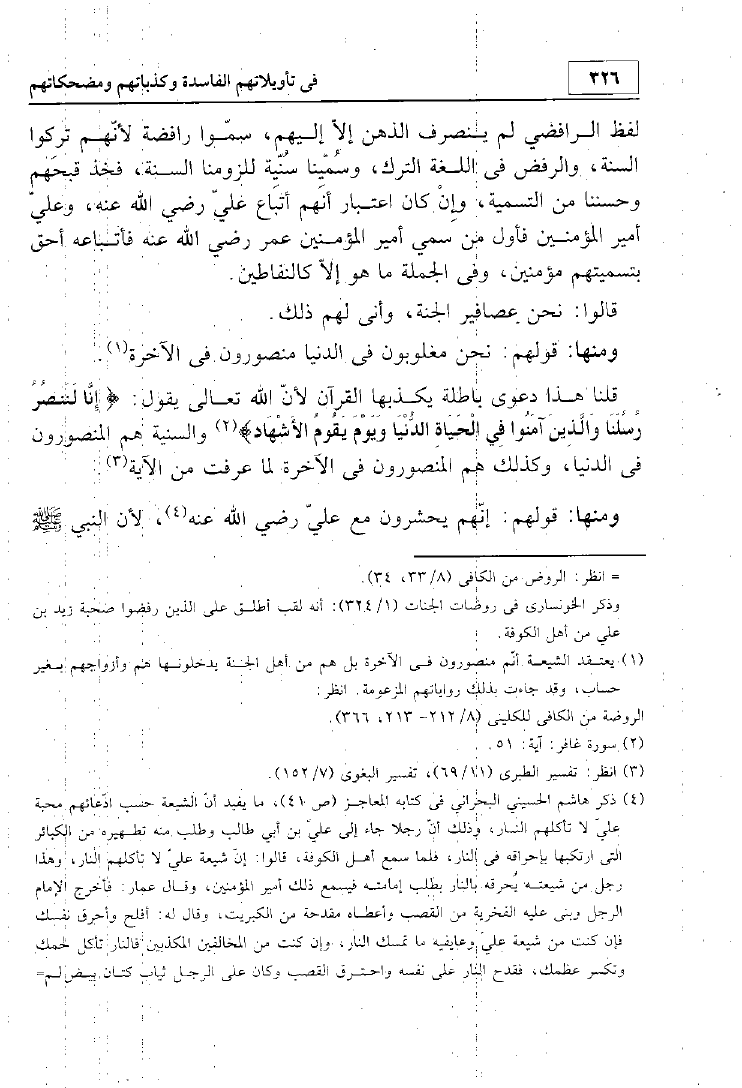 ٣٢٦
فى تأويلاتهم الفاسدة وكذباتهم ومضحكاتهم
لفظ الرافضي لم ينصرف الذهن إلاّ إليهم، سمّوا رافضة لأنّهم تركوا
السنة، والرفض فى اللغة الترك، وسُمّينا سُنّية للزومنا السنة، فخذ قبحَهم
وحسننا من التسمية، وإنْ كان اعتبار أنهم أتباع عليّ رضي الله عنه، وعليّ
أمير المؤمنين فأول من سمي أمير المؤمنين عمر رضي الله عنه فأتباعه أحق
بتسميتهم مؤمنين، وفى الجملة ما هو إلاّ كالنفاطين.
قالوا: نحن عصافير الجنة، وأنى لهم ذلك.
ومنها: قولهم: نحن مغلوبون فى الدنيا منصورون فى الآخرة(١).
قلنا هذا دعوى باطلة يكذبها القرآن لأنّ الله تعالى يقول: ﴿ إِنَّا لَنَنصُرُ
رُسُلَنَا وَالَّذِينَ آمَنُوا فِي الْحَيَاةِ الدُّنْيَا وَيَوْمَ يَقُومُ الأَشْهَادُ﴾(٢) والسنية هم المنصورون
فى الدنيا، وكذلك هم المنصورون فى الآخرة لما عرفت من الآية(٣).
ومنها: قولهم: إنّهم يحشرون مع عليّ رضي الله عنه(٤)، لأن النبي ﷺ
= انظر: الروض من الكافى (٣٣/٨، ٣٤).
وذكر الخونسارى فى روضات الجنات (٣٢٤/١): أنه لقب أطلق على الذين رفضوا صحبة زيد بن
علي من أهل الكوفة.
(١) يعتقد الشيعة أنّم منصورون فى الآخرة بل هم من أهل الجنة يدخلونها هم وأزواجهم بغير
حساب، وقد جاءت بذلك رواياتهم المزعومة. انظر:
الروضة من الكافى للكلينى (٢١٢/٨- ٢١٣، ٣٦٦).
(٢) سورة غافر: آية: ٥١.
(٣) انظر: تفسير الطبرى (٦٩/١١)، تفسير البغوى (١٥٢/٧).
(٤) ذكر هاشم الحسيني البحرانى فى كتابه المعاجز (ص ٤١٠)، ما يفيد أنّ الشيعة حسب ادّعائهم محبة
عليّ لا تأكلهم النار، وذلك أنّ رجلا جاء إلى عليّ بن أبي طالب وطلب منه تطهيره من الكبائر
التى ارتكبها بإحراقه فى النار، فلما سمع أهل الكوفة، قالوا: إنّ شيعة عليّ لا تأكلهم النار، وهذا
رجل من شيعته يُحرقه بالنار بطلب إمامته فيسمع ذلك أمير المؤمنين، وقال عمار: فأخرج الإمام
الرجل وبنى عليه الفخرية من القصب وأعطاه مقدحة من الكبريت، وقال له: أقلح وأحرق نفسك
فإن كنت من شيعة عليّ وعايفيه ما تمسك النار، وإن كنت من المخالفين المكذبين فالنار تأكل لحمك
وتكسر عظمك، فقدح النار على نفسه واحترق القصب وكان على الرجل ثياب كتان بيض لم=